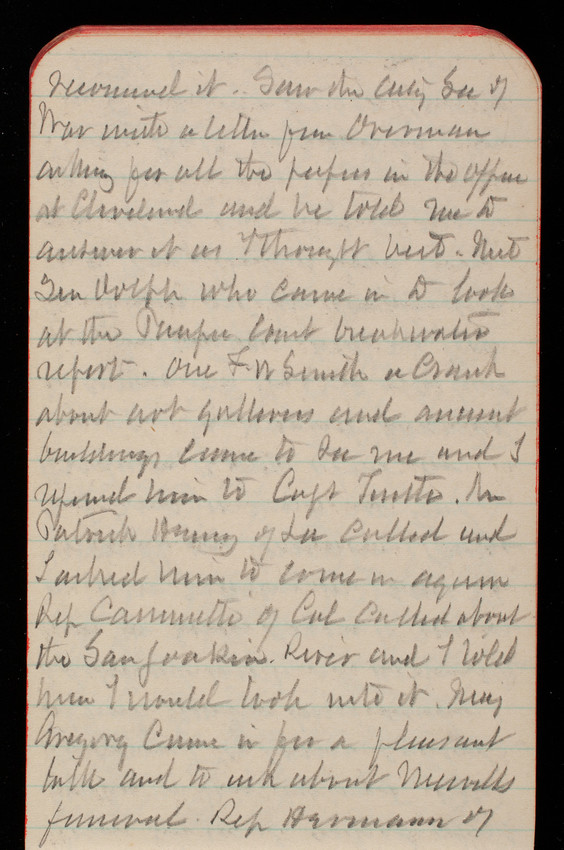 recommend it. Saw the actg Sec of
War with a letter from Overman
asking for all the papers in the office
at Cleveland and he told me to
answer it as I thought best. Met
Sen Dolph who came in to look
at the Pacific coast breakwater
report. One F W Smith a Crank
about art galleries and ancient
buildings came to see me and I
referred him to Capt Tuttle. Mr
Patrick Henry of La called and
I asked him to come in again
Rep Caminetti of Cal called about
the San Joaquin River and I told
him I would look into it. Maj
Gregory came in for a pleasant
talk and to ask about
funeral. Rep Hermann of